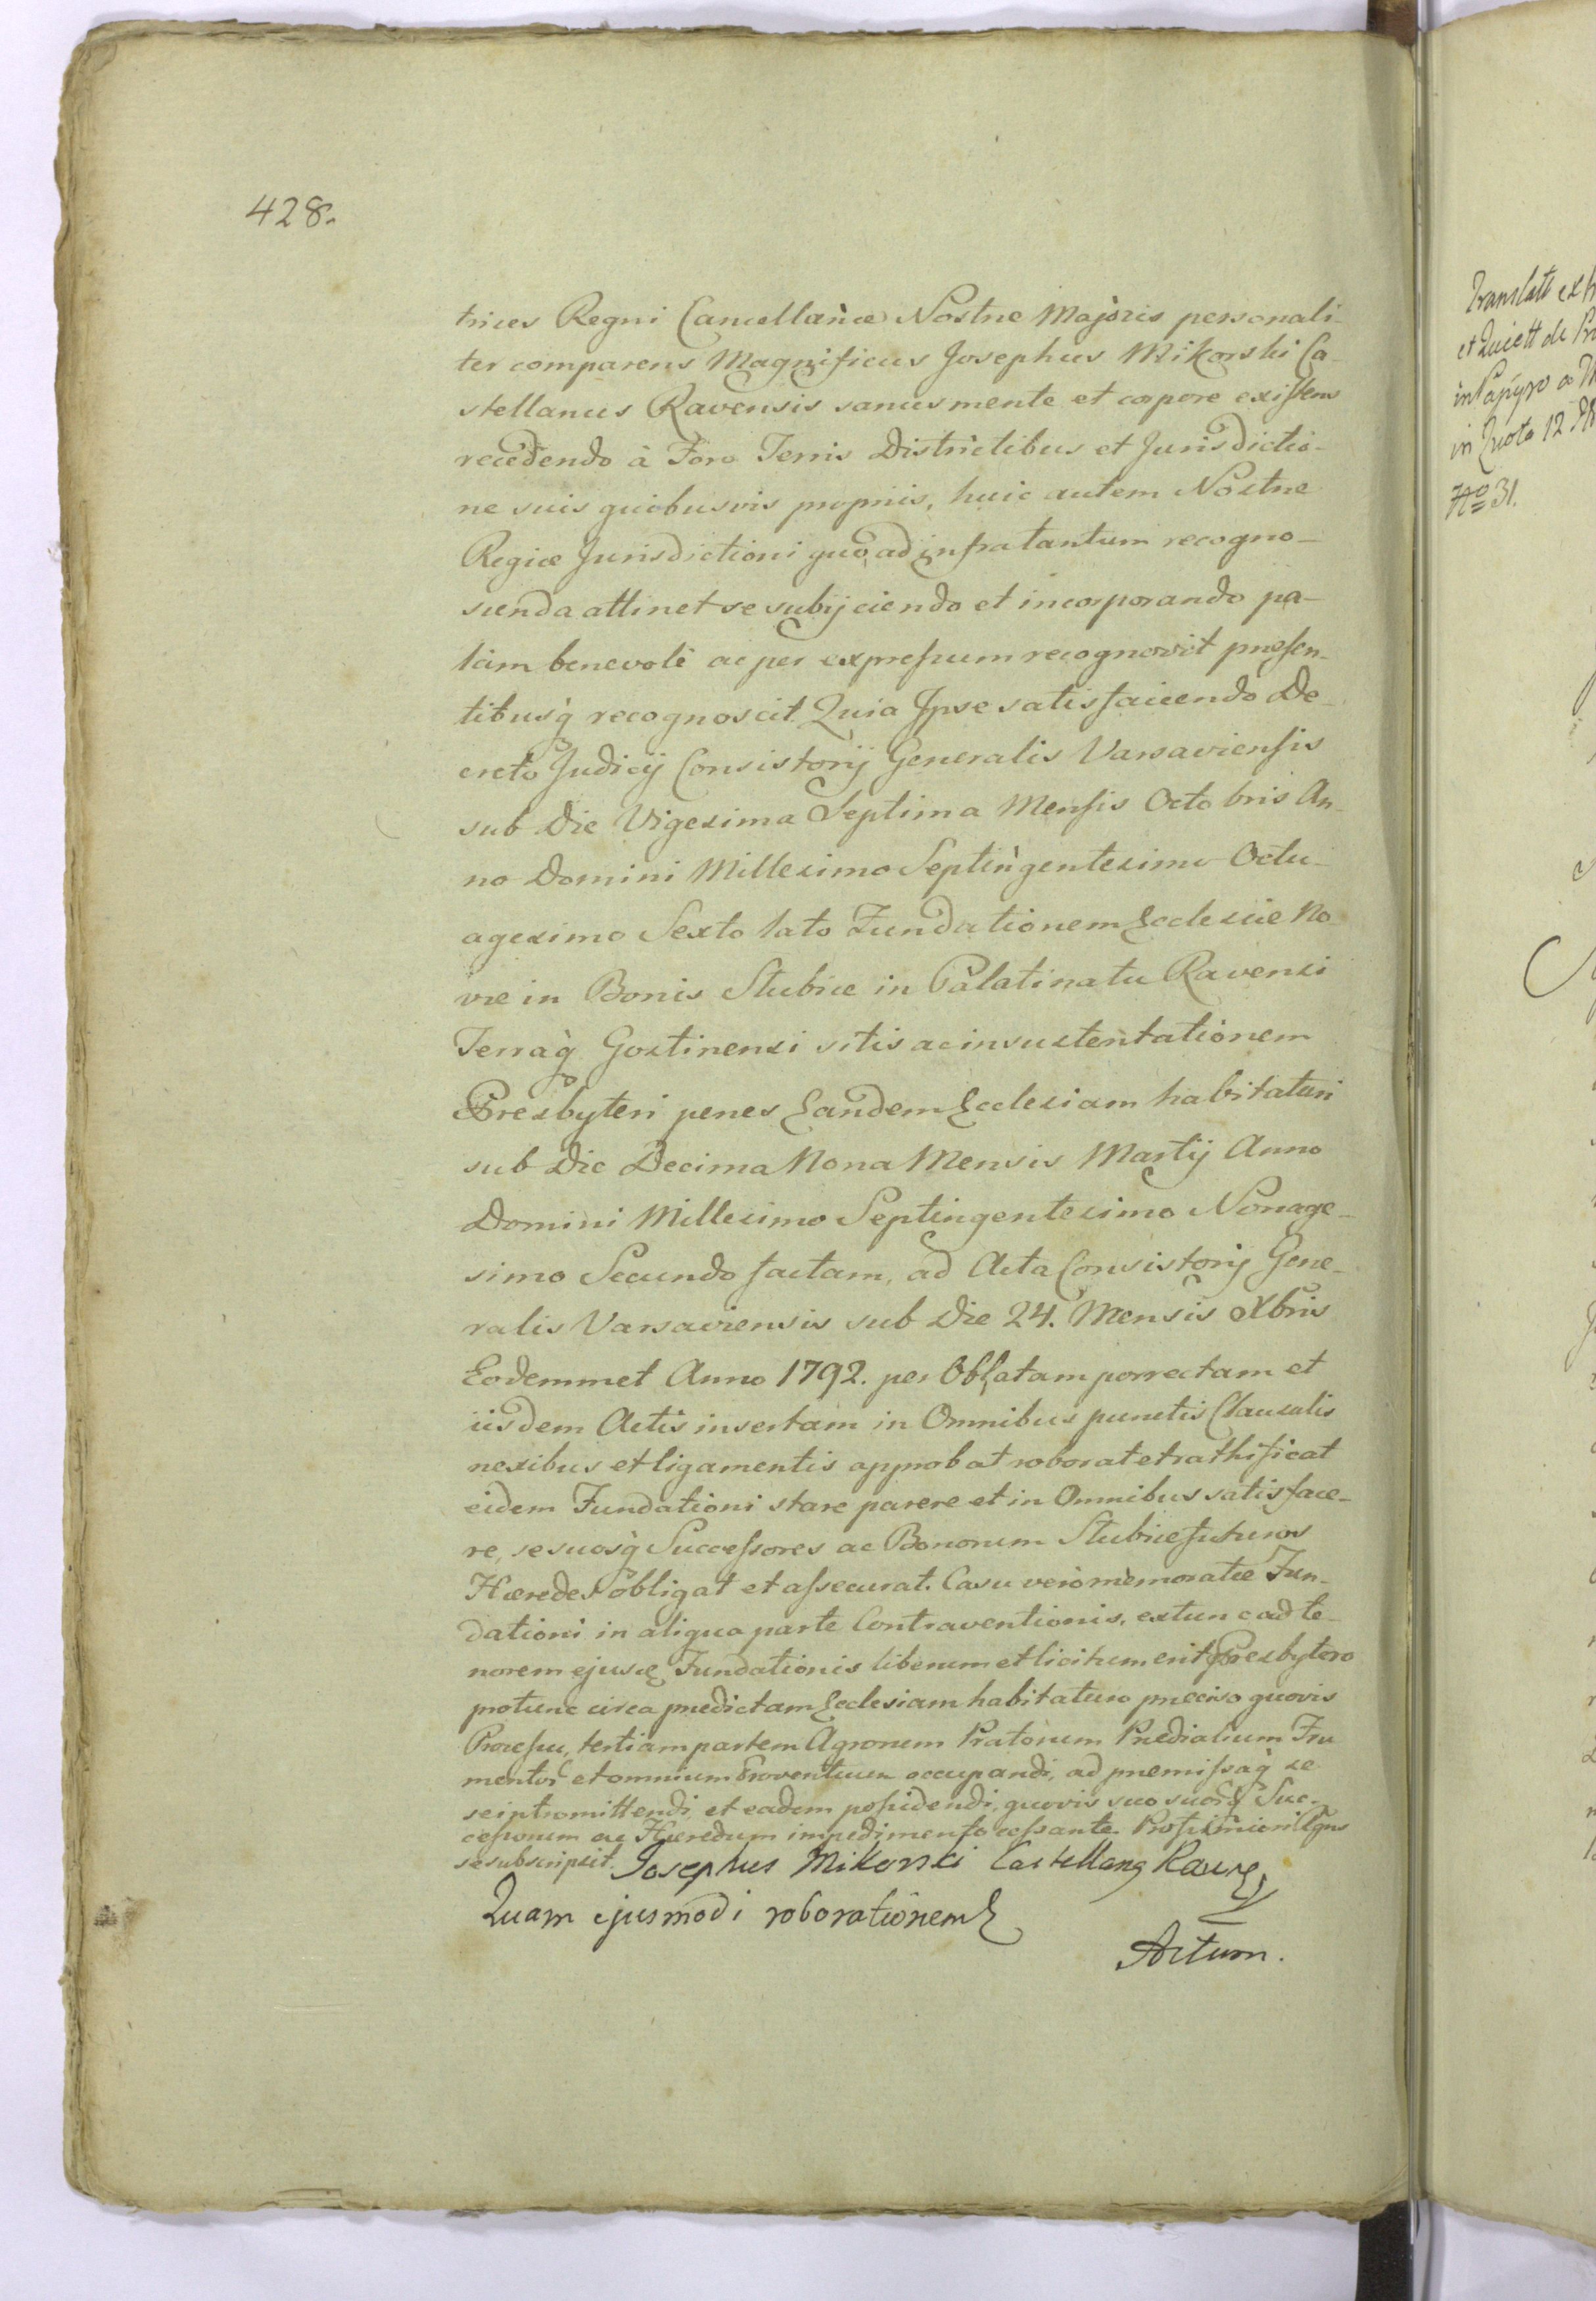 428.
trices Regni Cancellariæ Nostræ Majoris personali-
ter comparens Magnificus Josephus Mikorski Ca-
stellanus Ravensis sanus mente et corpore existens
recedendo à Foro Terris Districtibus et Jurisdictio-
ne suis quibusvis propriis, huic autem Nostræ
Regiæ Jurisdictioni quo ad infra tantum recogno-
scenda attinet se subijciendo et incorporando pa-
lam benevolè ac per expressum recognovit præsen-
tibusq̀ recognoscit. Quia Ipse satisfaciendo De-
creto Judicij Consistorij Generalis Varsaviensis
sub Die Vigesima Septima Mensis Octobris An-
no Domini Millesimo Septingentesimo Octu-
agesimo Sexto lato Fundationem Ecclesiæ No-
væ in Bonis Słubice in Palatinatu Ravensi
Terraq̀ Gostinensi sitis ac in sustentationem
Presbyteri penes Eandem Ecclesiam habitaturi
sub Die Decima Nona Mensis Martij Anno
Domini Millesimo Septingentesimo Nonage-
simo Secundo factam, ad Acta Consistorij Gene-
ralis Varsaviensis sub Die 24. Mensis Xbris
Eodemmet Anno 1792. per Oblatam porrectam et
iisdem Actis insertam in Omnibus punctis Clausulis
nexibus et ligamentis approbat roborat et rathificat
eidem Fundationi stare parere et in Omnibus satisface-
re, se suosq̀ Successores ac Bonorum Słubice futuros
Hæredes obligat et assecurat. Casu verò memoratæ Fun-
dationi in aliqua parte Contraventionis, extunc ad te-
norem ejusd. Fundationis liberum et licitum erit Presbytero
protunc circa prædictam Ecclesiam habitaturo præciso quovis
Processu, tertiam partem Agrorum Pratorum Prædialium Fru
mentor. et omnium Proventuum occupandi, ad præmissaq̀ se
se intromittendi, et eadem possidendi, quovis suo suorq̀ Suc-
cessorum ac Hæredum impedimento cessante. Pro quo
se subscripsit. Josephus Mikorski Castellanus Raven.
Quam ejusmodi roborationem
Actum.
in Papyro a
in Quota 12
No 31.